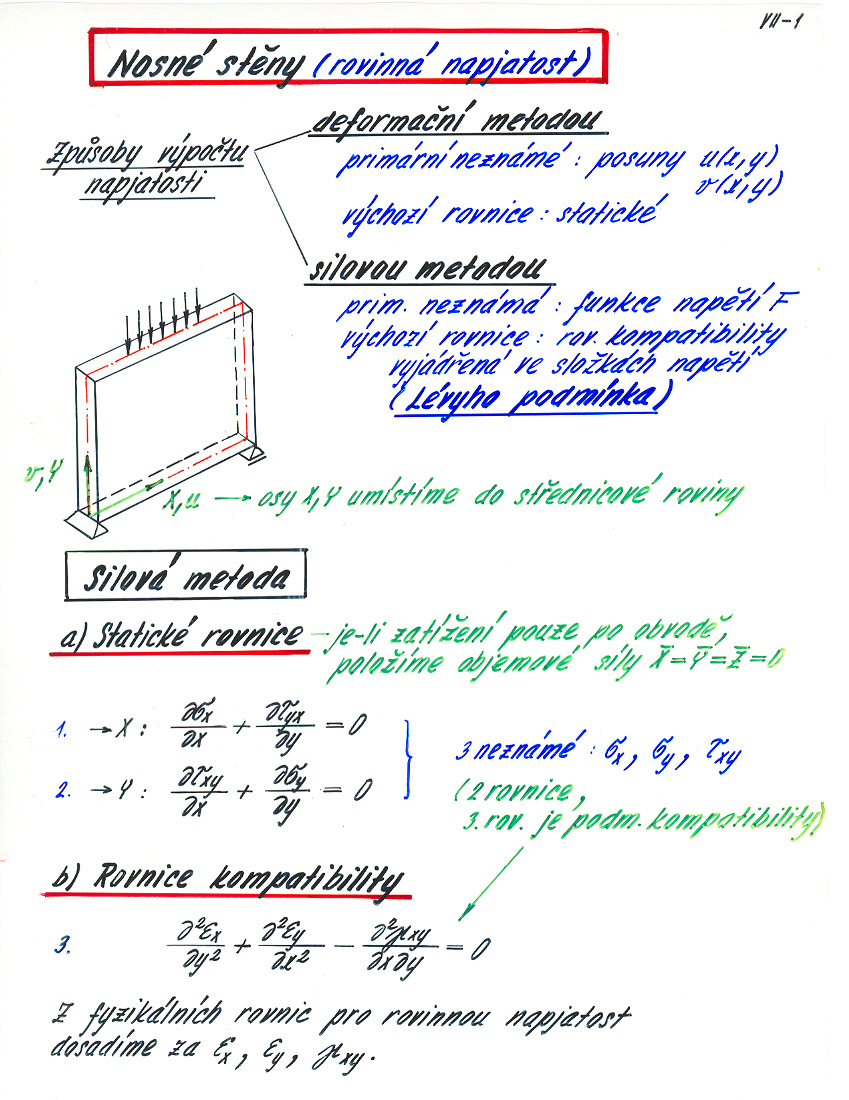 VII-1
Nosné stěny (rovinná napjatost)
Způsoby výpočtu
napjatosti
deformační metodou
primární neznámé : posuny u(x,y)
v(x,y)
výchozí rovnice : statické
silovou metodou
prim. neznámá : funkce napětí F
výchozí rovnice : rov. kompatibility
vyjádřená ve složkách napětí
(Lévyho podmínka)
v,Y
X,u → osy X,Y umístíme do střednicové roviny
Silová metoda
a) Statické rovnice – je-li zatížení pouze po obvodě,
položíme objemové síly X̅=Y̅=Z̅=0
1. →X: ∂σx/∂x + ∂τyx/∂y = 0
2. →Y: ∂τxy/∂x + ∂σy/∂y = 0
3 neznámé : σx, σy, τxy
(2 rovnice,
3. rov. je podm. kompatibility)
b) Rovnice kompatibility
3. ∂²εx/∂y² + ∂²εy/∂x² − ∂²γxy/∂x∂y = 0
Z fyzikálních rovnic pro rovinnou napjatost
dosadíme za εx, εy, γxy.